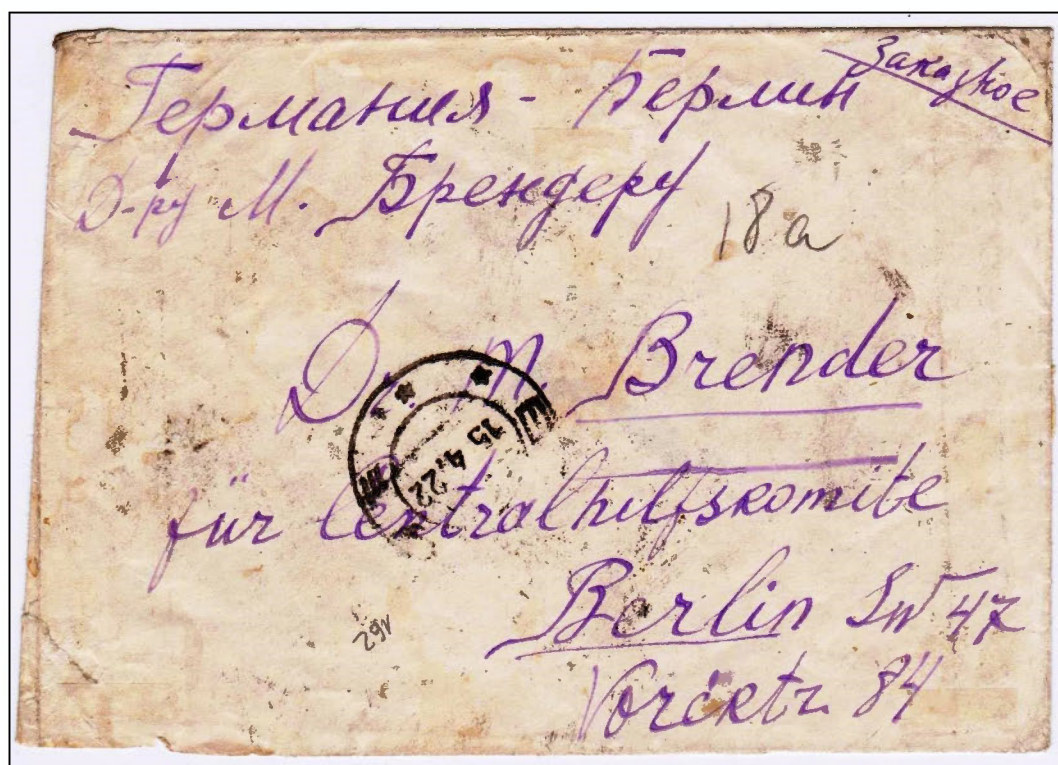 Заказное
Германия - Берлин
Д-ру М. Брендеру
18 a
Dr. M. Brender
15 4.22
für Centralhilfskomite
Berlin SW 47
84